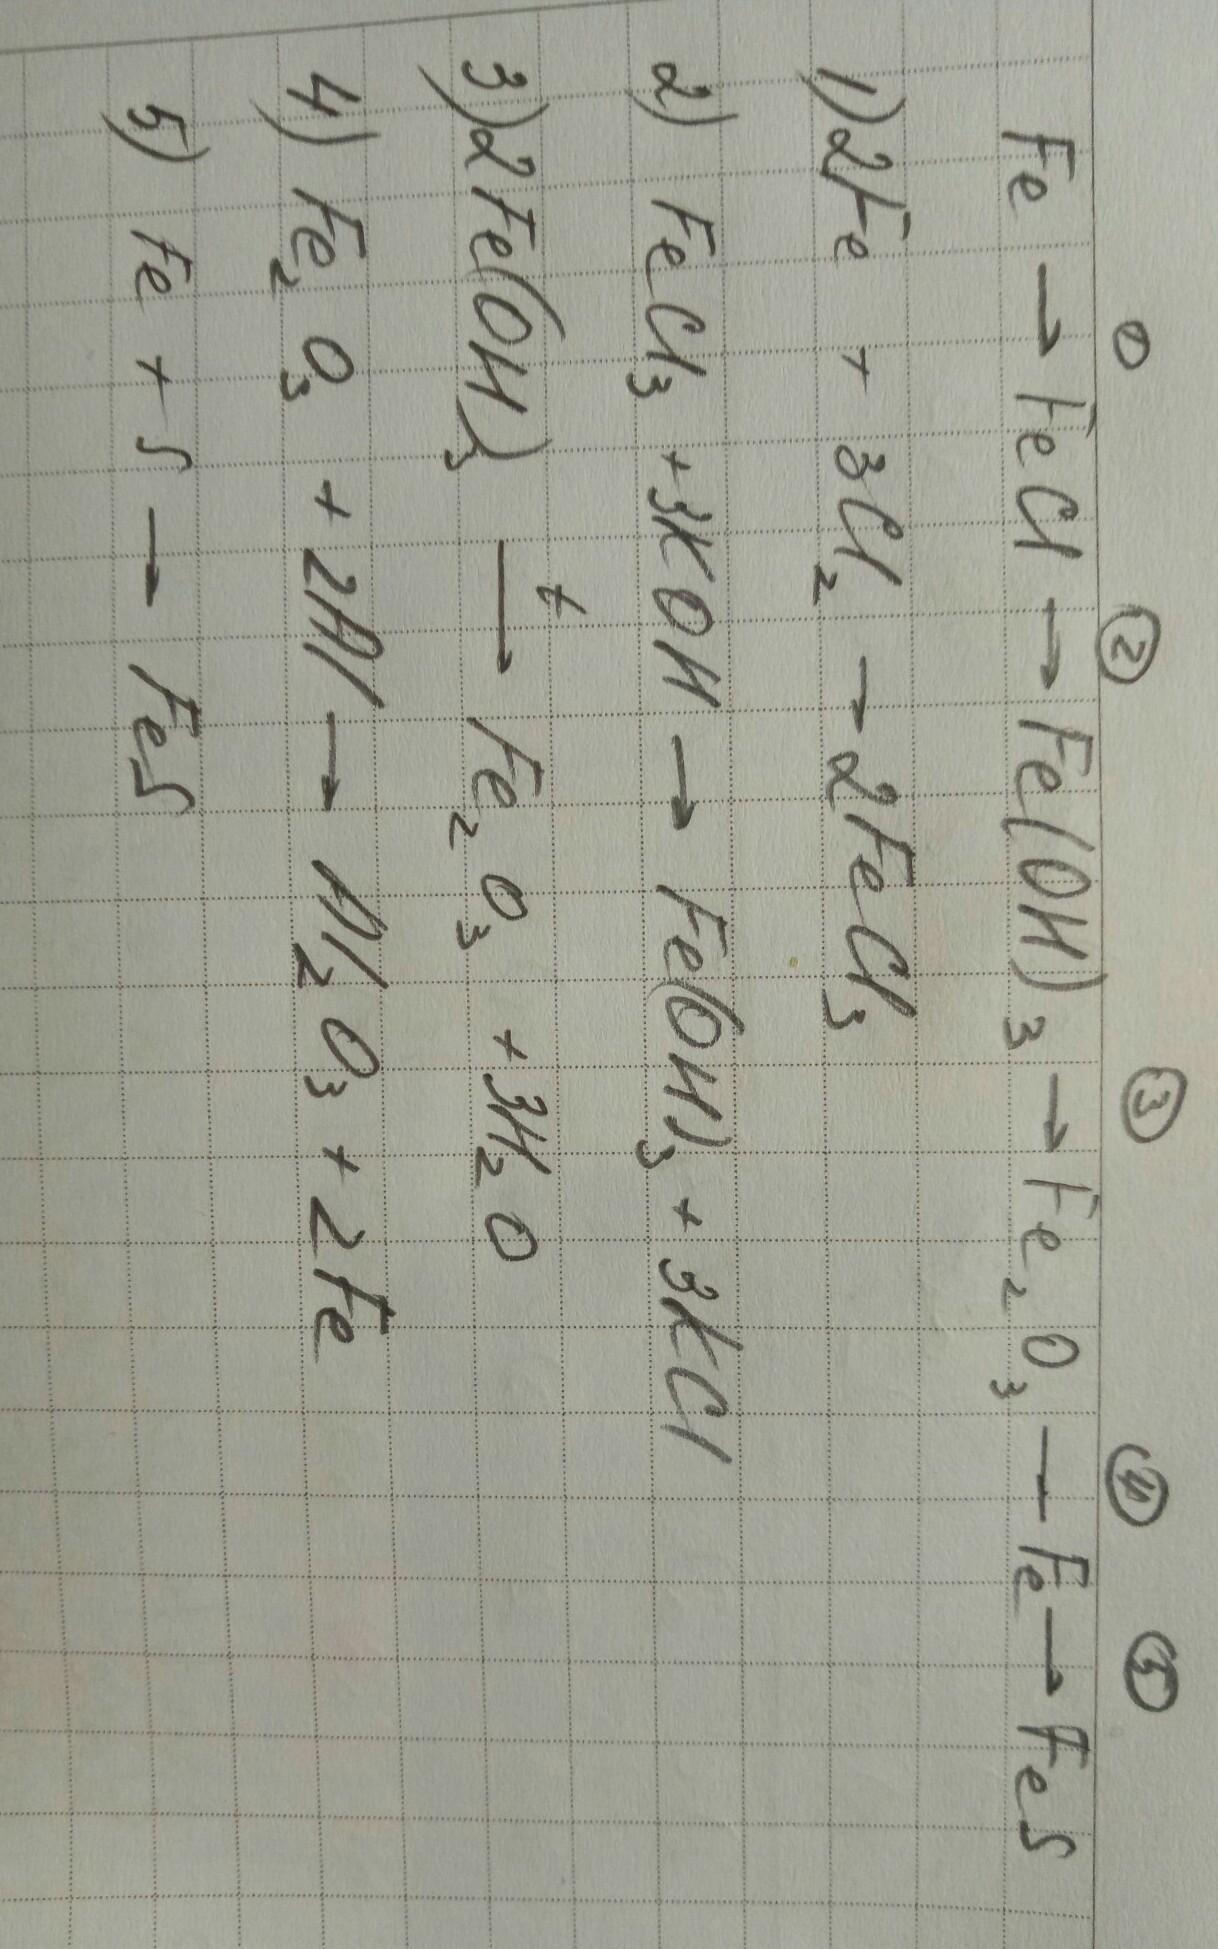 ① ② ③ ④ ⑤
Fe → FeCl → Fe(OH)₃ → Fe₂O₃ — Fe → FeS
1) 2Fe + 3Cl₂ → 2FeCl₃
2) FeCl₃ + 3KOH → Fe(OH)₃ + 3KCl
t
3) 2Fe(OH)₃ → Fe₂O₃ + 3H₂O
4) Fe₂O₃ + 2Al → Al₂O₃ + 2Fe
5) Fe + S → FeS